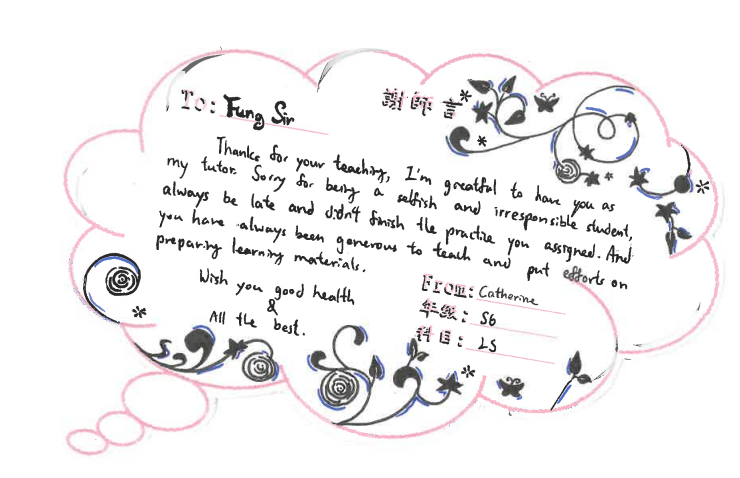 To: Fung Sir
謝師言
Thanks for your teaching, I'm greatful to have you as
my tutor. Sorry for being a selfish and irresponsible student,
always be late and didn't finish the practice you assigned. And
you have always been generous to teach and put efforts on
preparing learning materials.
Wish you good health
&
All the best.
From: Catherine
年級: S6
科目: LS